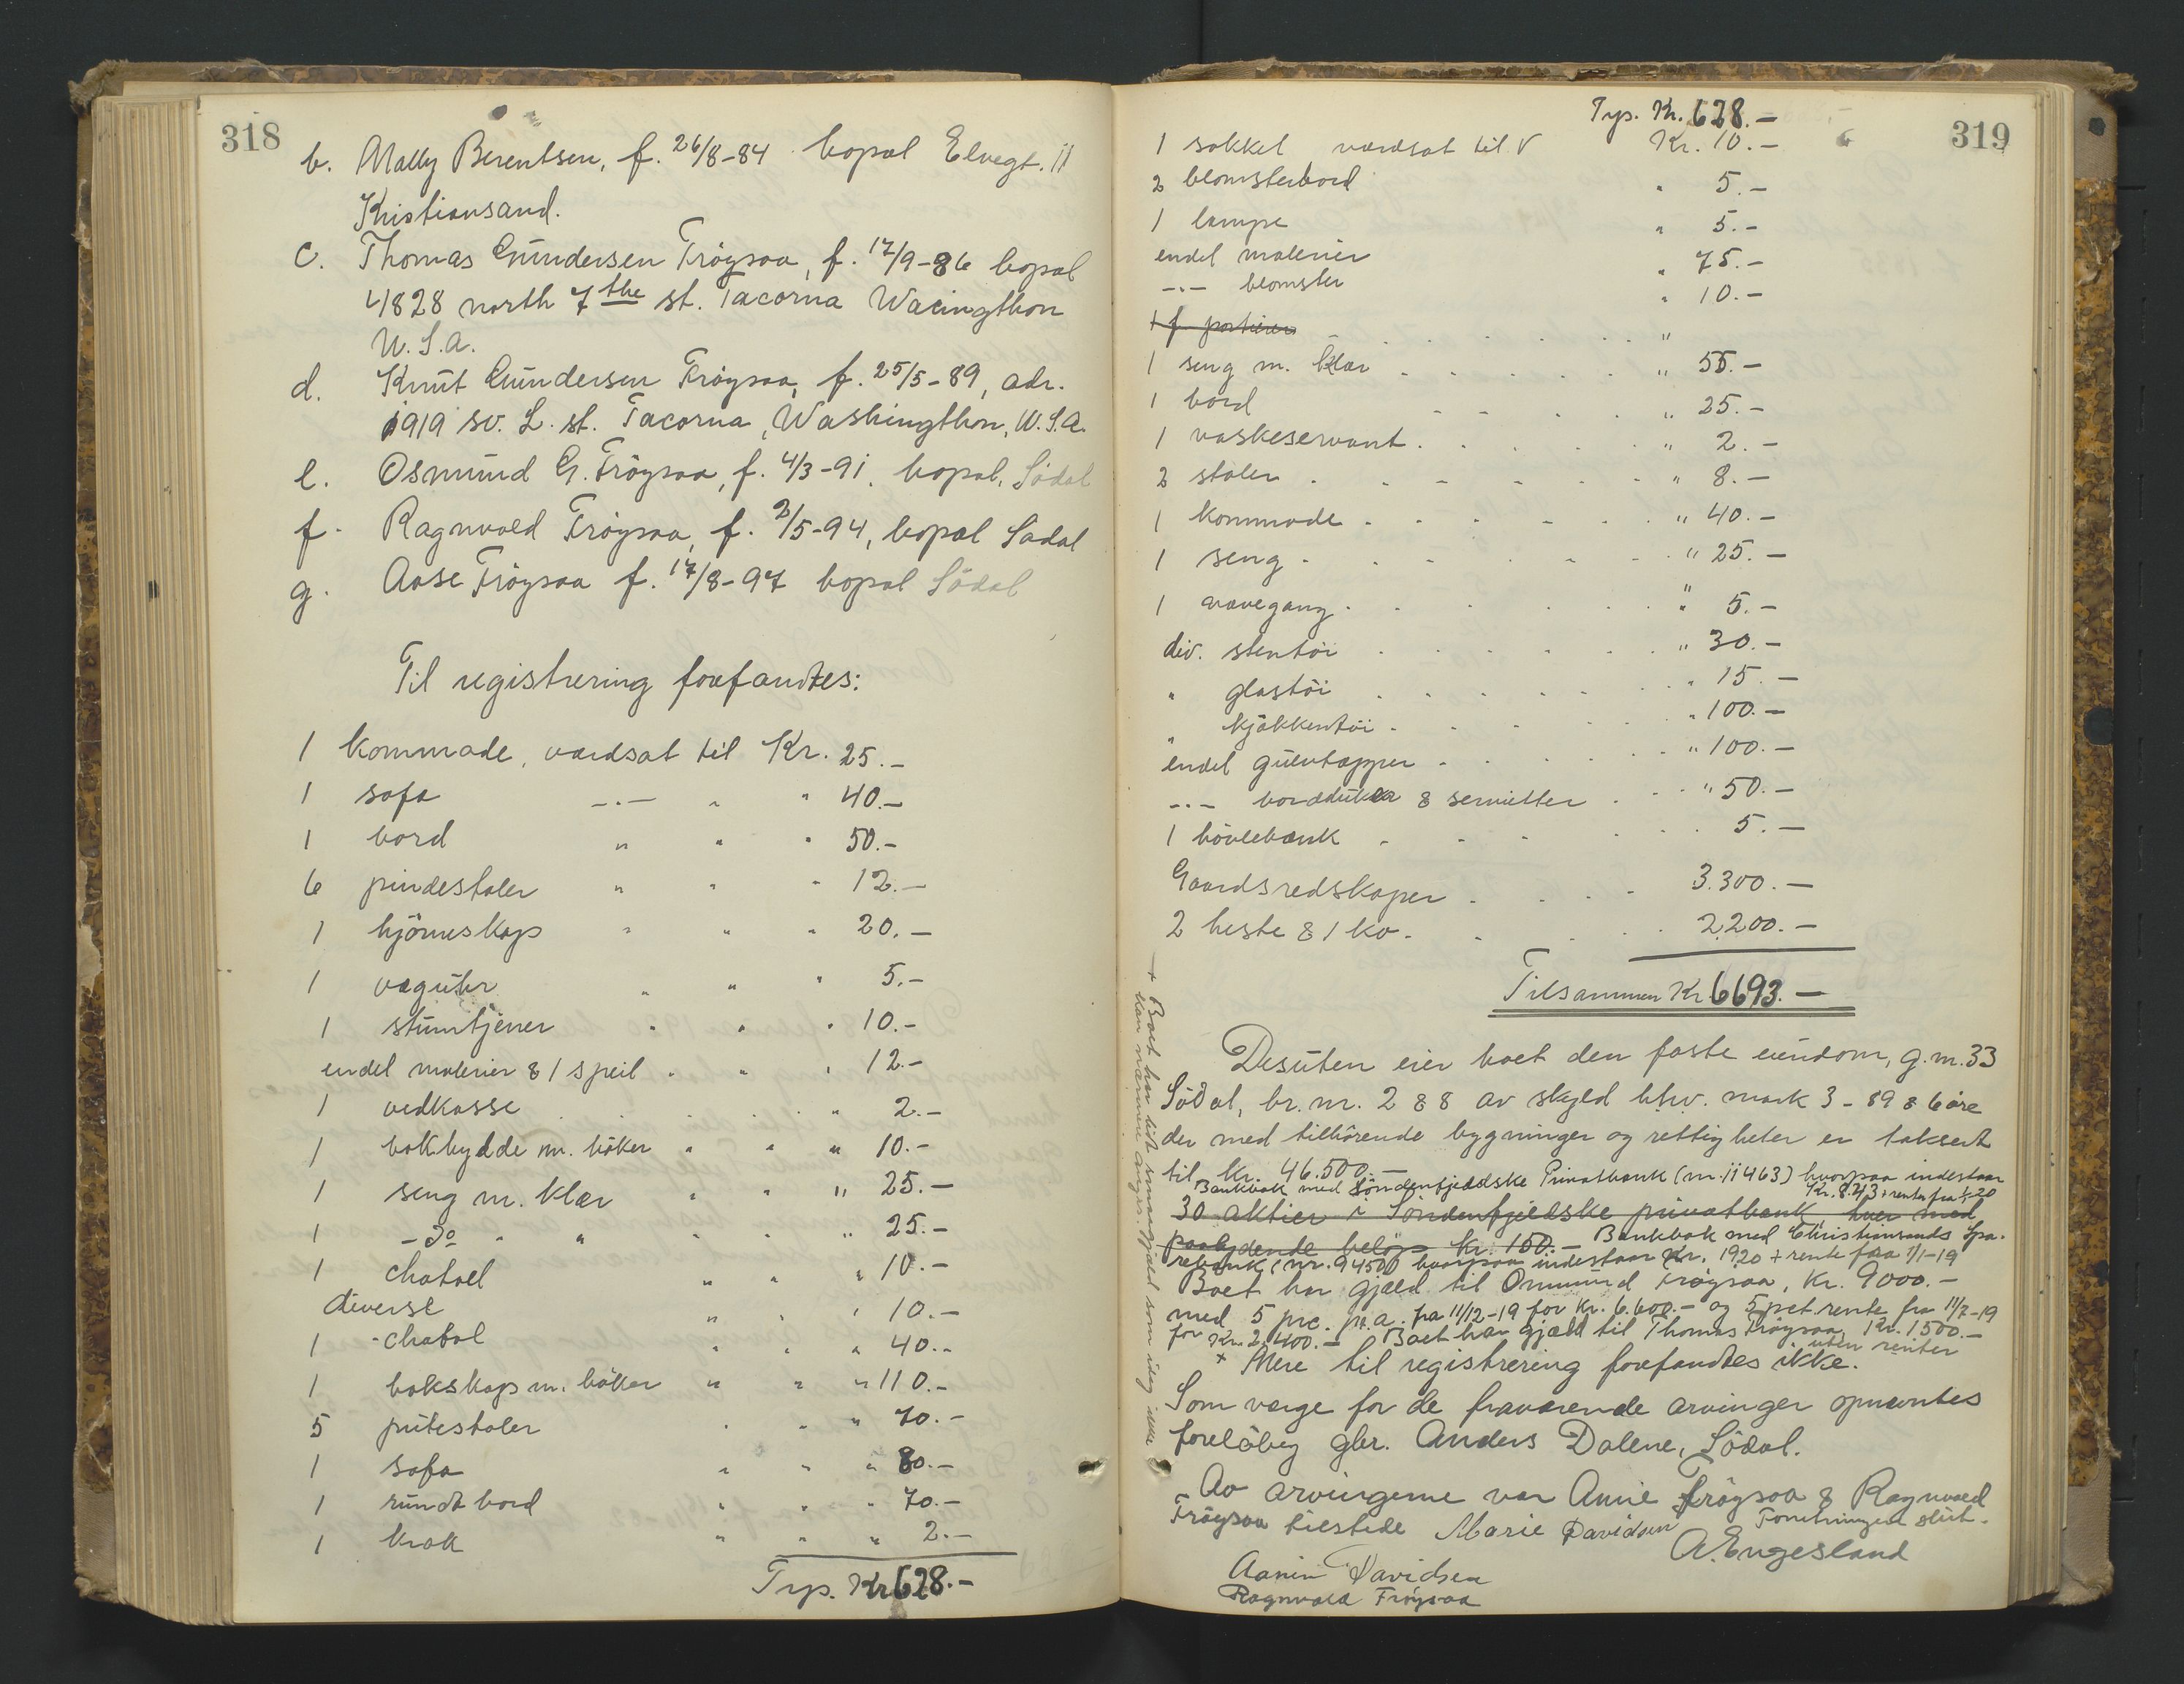 318
b. Mally Berentsen, f. 26/8-84 bopæl Elvegt. 11
Kristiansand.
c. Thomas Gundersen Frøysaa, f. 17/9-86 bopæl
4828 north 7 the st. Tacoma Wacingthon
U.S.A.
d. Knut Gundersen Frøysaa, f. 25/5-89, adr.
1919 so. L. st. Tacoma, Washingthon, U.S.A.
e. Osmund G. Frøysaa, f. 4/3-91. bopæl, Södal
f. Ragnvald Frøysaa, f. 2/5-94, bopæl Södal
g. Aase Frøysaa f. 17/8-97 bopæl Södal
Til registrering forefandtes:
1 kommode, værdsat til Kr. 25.-
1 sofa -.- " " 40.-
1 bord " " " 50.-
6 pindestoler " " " 12.-
1 hjörneskap " " " 20.-
1 væguhr " " " 5.-
1 stumtjener " " " 10.-
endel malerier & 1 speil . " " 12.-
1 vedkasse . . . . " 2.-
1 bokhylde m. böker " " " 10.-
1 seng m. klær " " " 25.-
1 -do " " . . " 25.-
1 chatoll " " " 10.-
diverse " " " 10.-
1 chatol " " " 40.-
1 bokskap m. böker " " " 110.-
5 putestoler . . " 70.-
1 sofa " " " 80.-
1 rundt bord " " " 70.-
1 krak " " " 2.-
Trsp. Kr 628.-
319
Trsp. Kr. 628.-
1 sokkel værdsat til Kr. 10.-
2 blomsterbord " 5.-
1 lampe " 5.-
endel malerier " 75.-
-.- blomster " 10.-
1 f portierer . . . . . "
1 seng m. klær . . . . . " 55.-
1 bord . . . . " 25.-
1 vaskeservant . . . . . " 2.-
2 stoler . . . . . . " 8.-
1 kommode . . . . . . " 40.-
1 seng . . . . . . " 25.-
1 vævegang . . . . . " 5.-
div. stentöi . . . . . " 30.-
" glastöi . . . . . " 15.-
" kjökkentöi . . . . . " 100.-
endel gulvtæpper . . . . . " 100.-
-.- bordduker & servietter . . . " 50.-
1 hövlebænk . . . . . . 5.-
Gaardsredskaper . . . . 3.300.-
2 heste & 1 ko . . . . 2.200.-
Tilsammen Kr 6693.-
Desuten eier boet den faste eiendom, g.nr. 33
Södal, br. nr. 2 & 8 av skyld hhv. mark 3 - 89 & 6 öre
der med tilhörende bygninger og rettigheter er taksert
til kr. 46.500.-
Bankbok med Söndenfjeldske Privatbank (nr. 11463) hvorpaa indestaar
Kr. 8.213 + renter fra 1/1-20
30 aktier i Söndenfjeldske privatbank hver med
paalydende belöp kr. 150.- Bankbok med Christiansands Spa-
rebank (nr. 94500 hvorpaa indestaar Kr. 1920 + rente fra 1/1-19
Boet har gjæld til Ommund Frøysaa, Kr. 9000.-
med 5 prc. p.a. fra 11/12-19 for kr. 6.600.- og 5 pct. rente fra 11/7-19
for Kr. 2.400.- Boet har gjæld til Thomas Frøysaa, Kr. 1500.-
uten renter
+ Mere til registrering forefandtes ikke.
Som værge for de fraværende arvinger opnævntes
foreløbig gbr. Anders Dalene, Södal.
Av arvingerne var Anne Frøysaa & Ragnvald
Frøysaa tilstede Marie Davidsen Forretningen slut.
A. Engesland
Aanen Davidsen
Ragnvald Frøysaa
+ Boet har litt smaagjæld som idag ikke
kan nærmere angis.